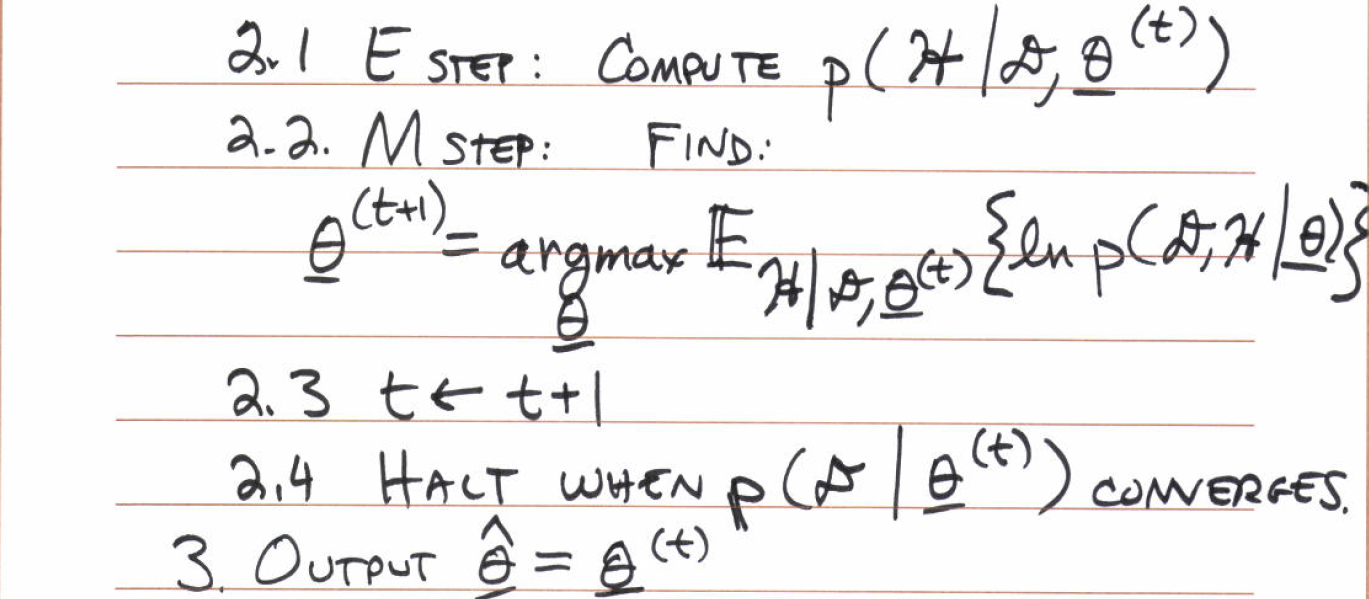 2.1 E STEP: COMPUTE p(ℋ|𝒟, θ̲^(t))
2.2. M STEP: FIND:
θ̲^(t+1) = argmax_θ̲ 𝔼_ℋ|𝒟,θ̲^(t) {ln p(𝒟,ℋ|θ̲)}
2.3 t ← t+1
2.4 HALT WHEN p(𝒟|θ̲^(t)) CONVERGES.
3. OUTPUT θ̲̂ = θ̲^(t)